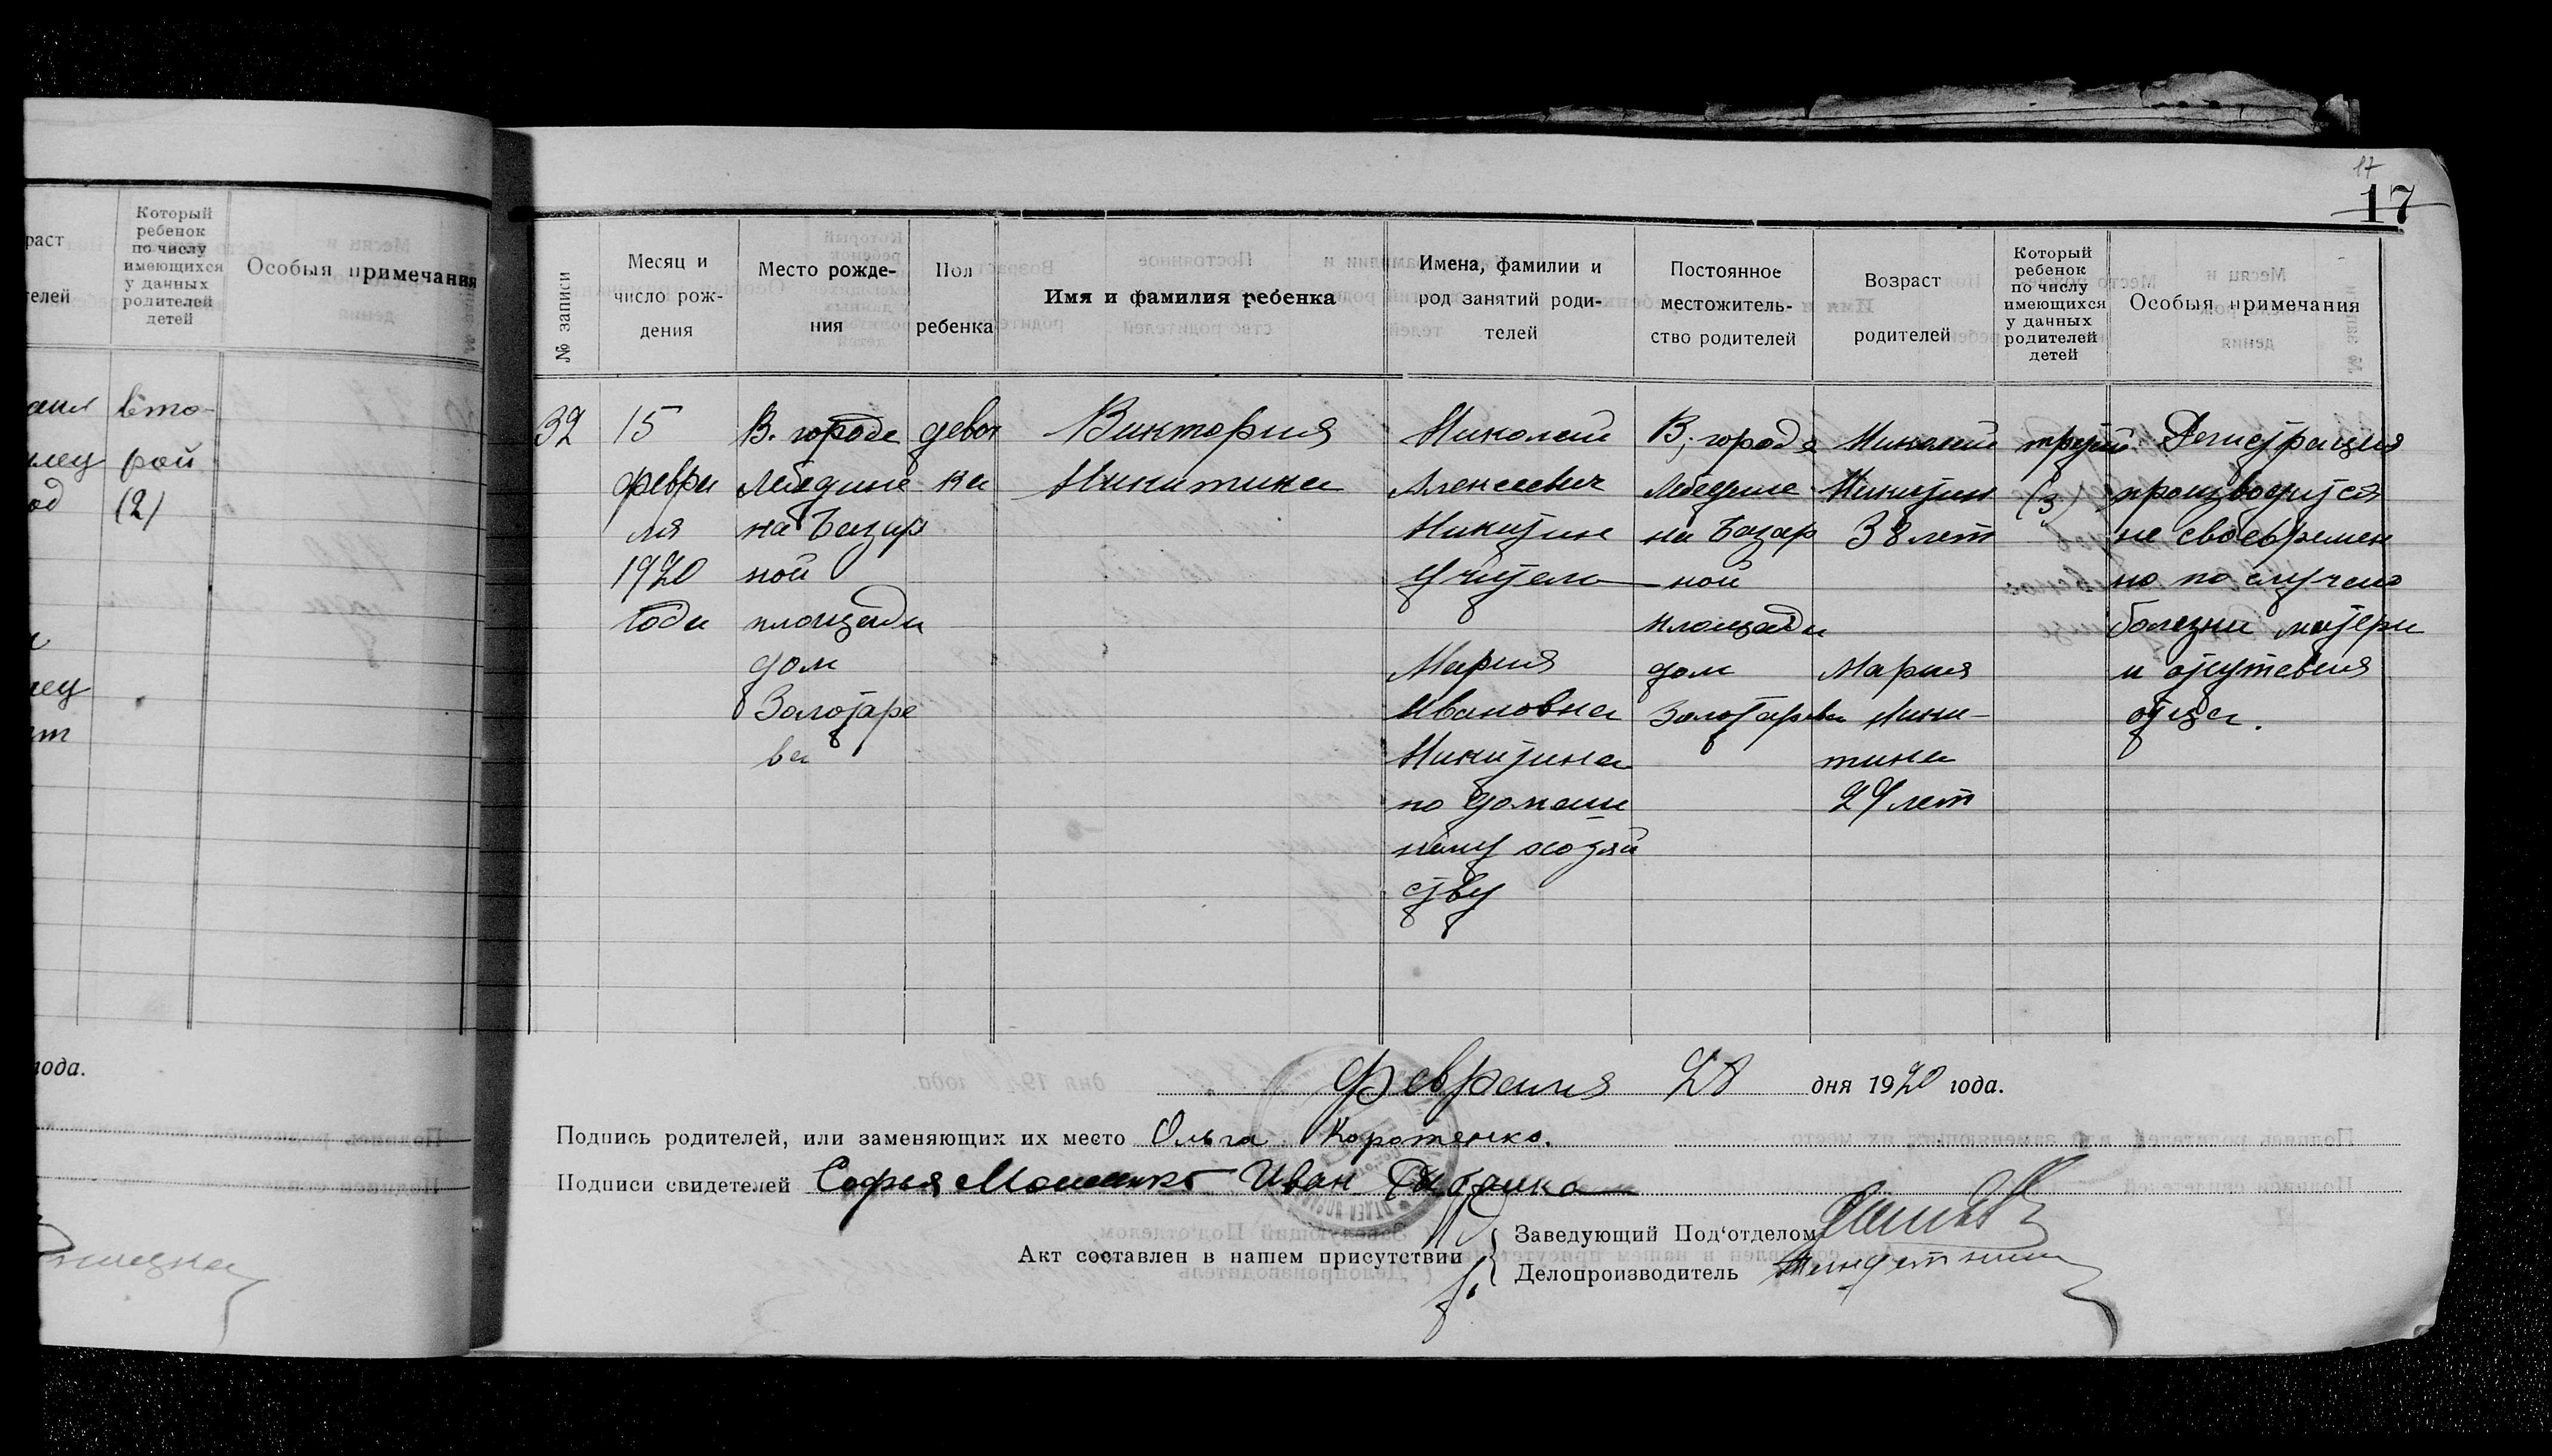 раст
телей
Который
ребенок
по числу
имеющихся
у данных
родителей
детей
Особыя примечания
вто-
рой
(2)
лет
года.
17
17
№ записи
Месяц и
число рож-
дения
Место рожде-
ния
Пол
ребенка
Имя и фамилия ребенка
Имена, фамилии и
род занятий роди-
телей
Постоянное
местожитель-
ство родителей
Возраст
родителей
Который
ребенок
по числу
имеющихся
у данных
родителей
детей
Особыя примечания
32
15
февра
ля
1920
года
В. городе
Лебедине
на Базар
ной
площади
дом
Золотаре
ва
девоч
ка
Виктория
Никитина
Николай
Алексеевич
Никитин
учитель
Мария
Ивановна
Никитина
по домаш
нему хозяй
ству
В. городе
Лебедине
на Базар
ной
площади
дом
Золотарева
Николай
Никитин
38 лет
Мария
Ники-
тина
29 лет
третий
(3)
Регистрация
производится
не своевремен
но по случаю
болезни матери
и отсутсвия
отца.
Февраля 28 дня 1920 года.
Подпись родителей, или заменяющих их место Ольга Коротенко.
Подписи свидетелей Софья Иван
Акт составлен в нашем присутствии
Заведующий Под'отделом
Делопроизводитель